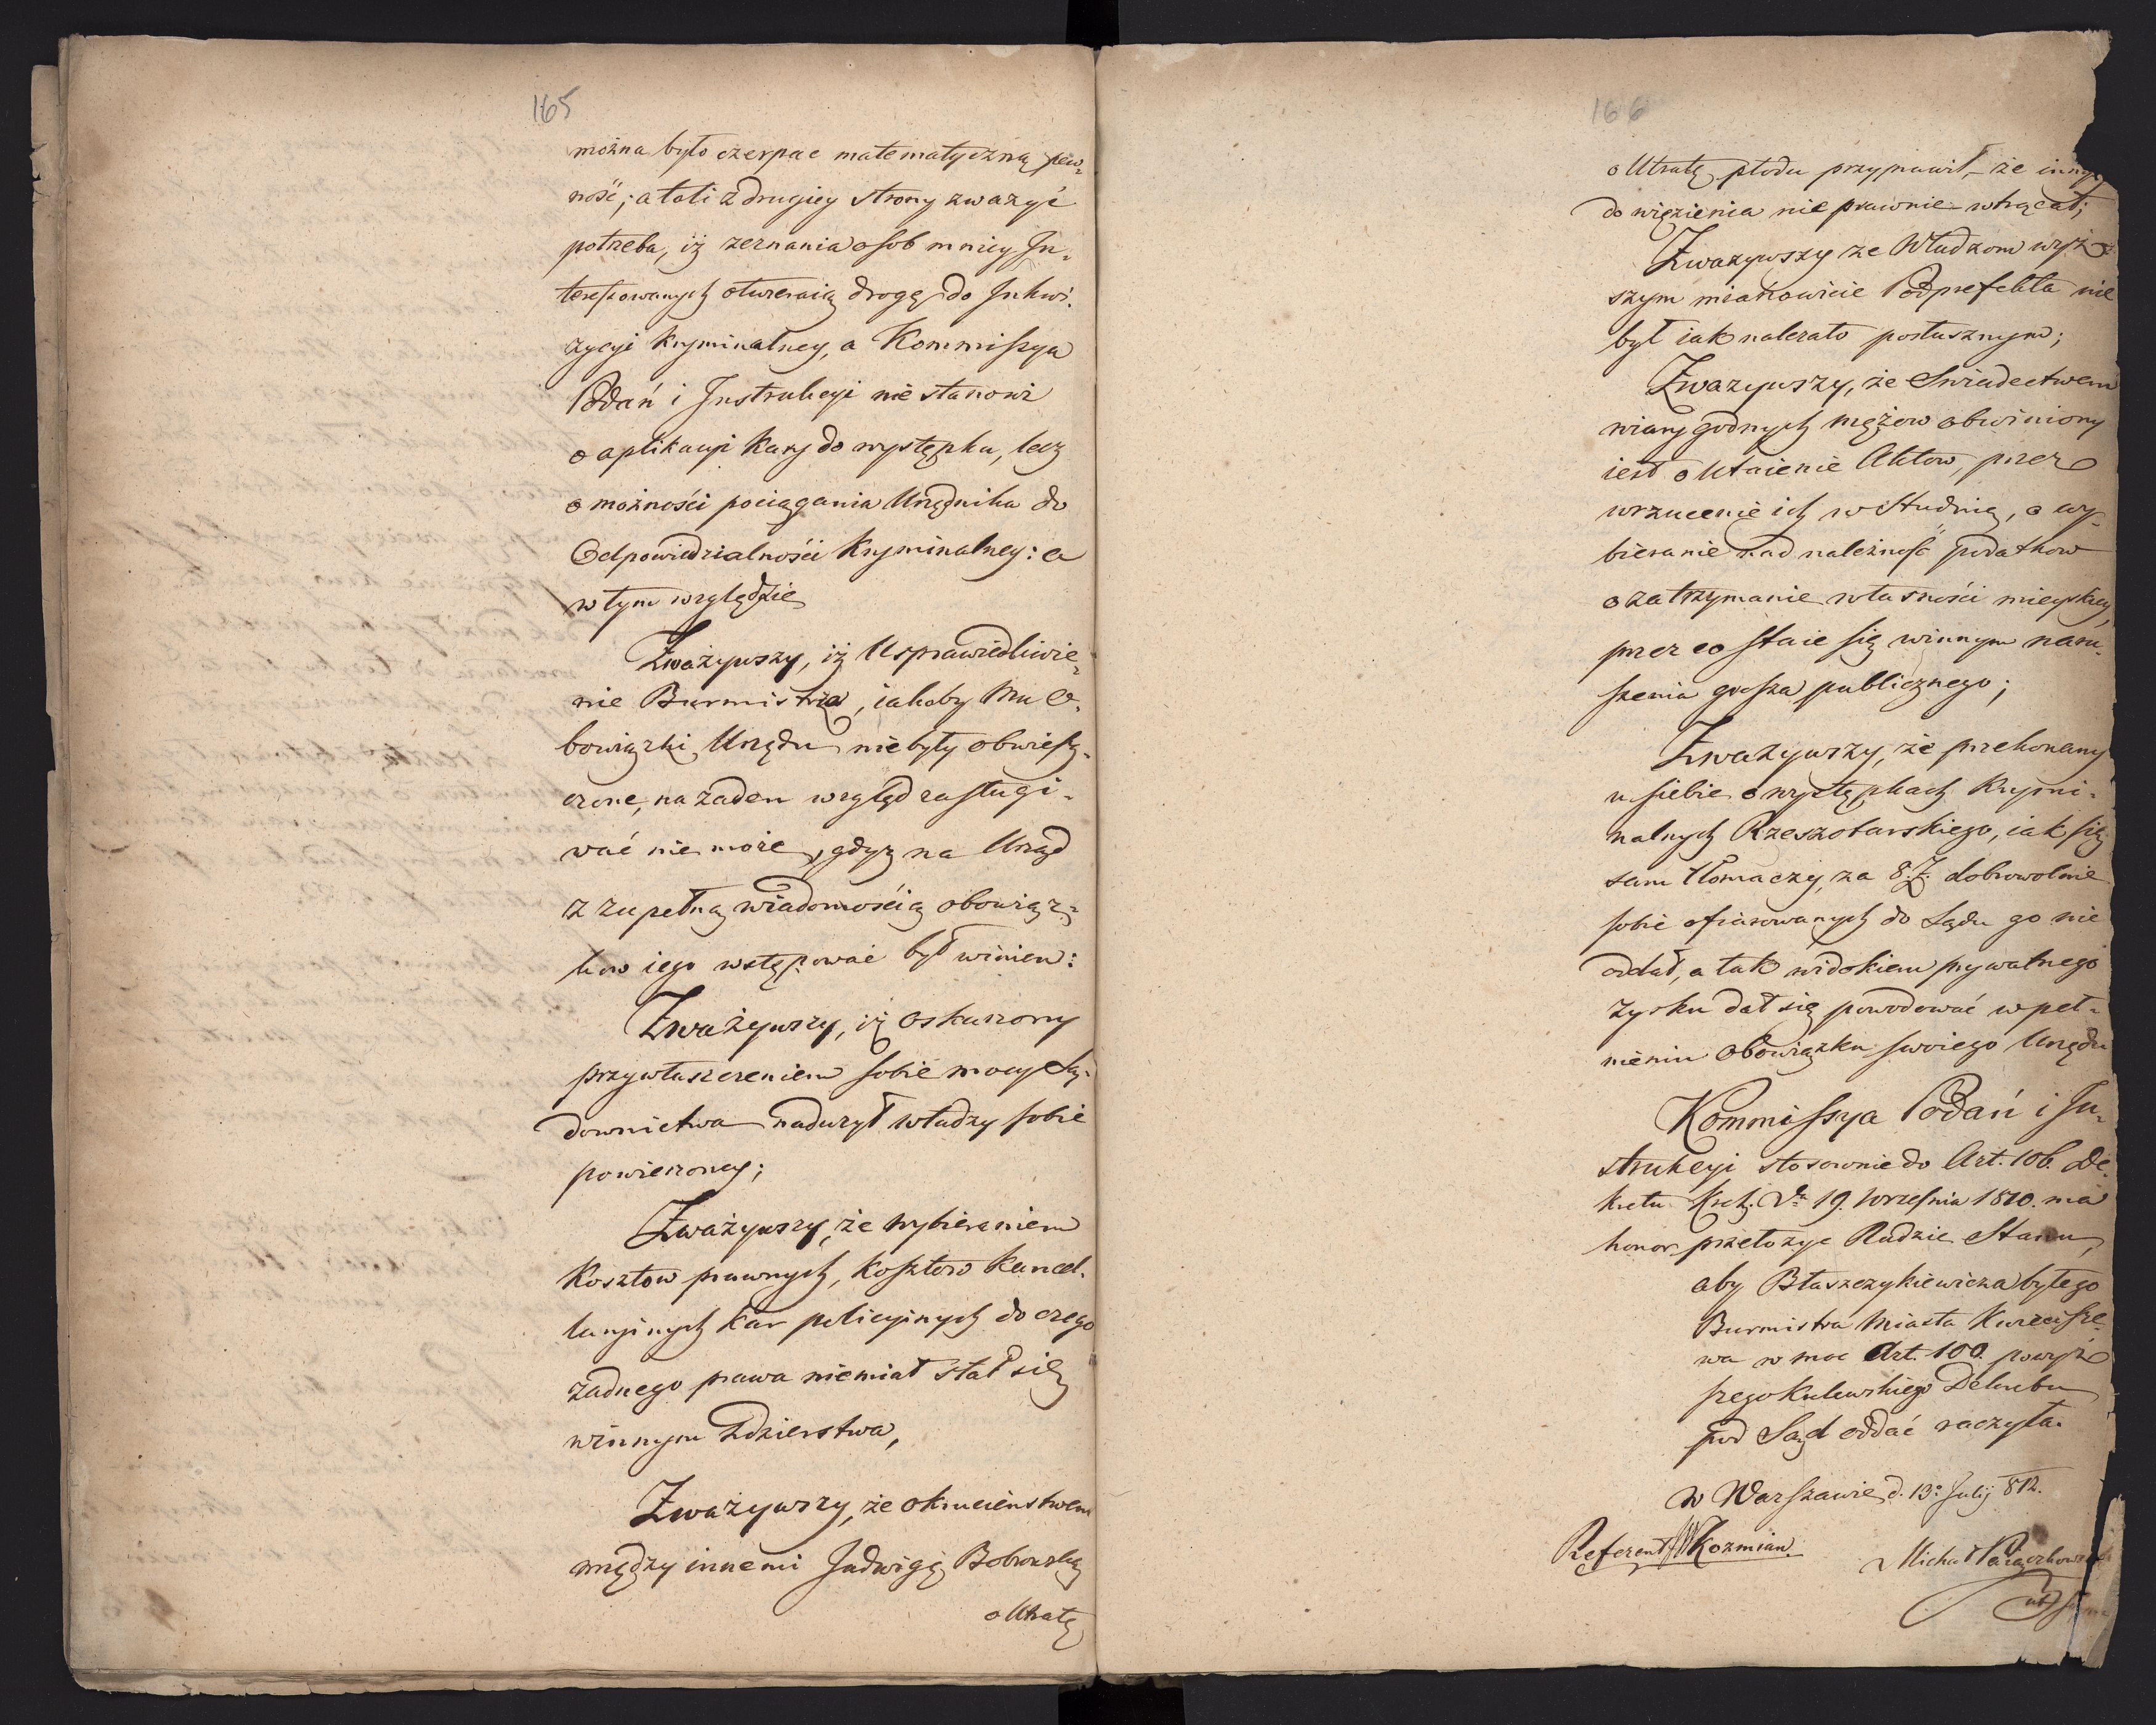 165
można było czerpac matematyczną pew„
ność; atoli z drugiey strony zwazyć
potrzeba, iż zeznania osob mniey In„
teressowanych otwieraią drogę do Inkwi„
zycyi kryminalney, a Kommissya
Podań i Instrukcyi nie stanowi
o aplikacyi Kary do występku, lecz
o możności pociągania Urzędnika do
Odpowiedzialności Kryminalney: a
w tym względzie
Zważywszy, iż Usprawiedliwie„
nie Burmistrza, iakoby Mu O„
bowiązki Urzędu nie były obwiesz„
czone, na żaden wzgląd zasługi„
wać nie może, gdyż na Urząd
z zupełną wiadomością obowiąz„
kow iego wstępować był winien:
Zważywszy, iż oskarzony
przywłaszczeniem sobie mocy Są„
downictwa nadużył władzy sobie
powierzoney;
Zważywszy, że wybieraniem
Kosztow prawnych, kosztow kancel„
laryinych kar policyinych do czego
żadnego prawa niemiał stał się
winnym zdzierstwa,
Zważywszy, że okrucieństwem
między innemi Jadwigę Bobrowską
o Utratę
166
o Utratę płodu przyprawił, że innych
do więzienia nie prawnie wtrącał;
Zwazywszy ze Władzom wyż„
szym mianowicie Podprefekta nie
był iak nalezało posłusznym;
Zwazywszy, że Swiadectwem
wiary godnych mężow obwiniony
iest o Utaienie Aktow, przez
wrzucenie ich w Studnią, o wy„
bieranie nad należność podatkow
o zatrzymanie własności mieyskiey,
przez co staie się winnym naru„
szenia grosza publicznego;
Zwazywszy, że przekonany
u siebie o występkach Krymi„
nalnych Rzeszotarskiego, iak się
sam tłomaczy, za 8. Z. dobrowolnie
sobie ofiarowanych do Sądu go nie
oddał, a tak widokiem prywatnego
zysku dał się powodować w peł„
nieniu obowiązku swoiego Urzędu
Kommissya Podań i In„
strukcyi stosownie do Art. 106. De„
kretu Król. Dn 19. Września 1810. ma
honor przełożyc Radzie Stanu,
aby Błaszczykiewicza byłego
Burmistra Miasta
wa w moc Art. 100. powyż
szego Dekretu
pod Sąd oddać raczyła.
W Warszawie d. 13. Julij 812.
Referent Kozmian.
Michał